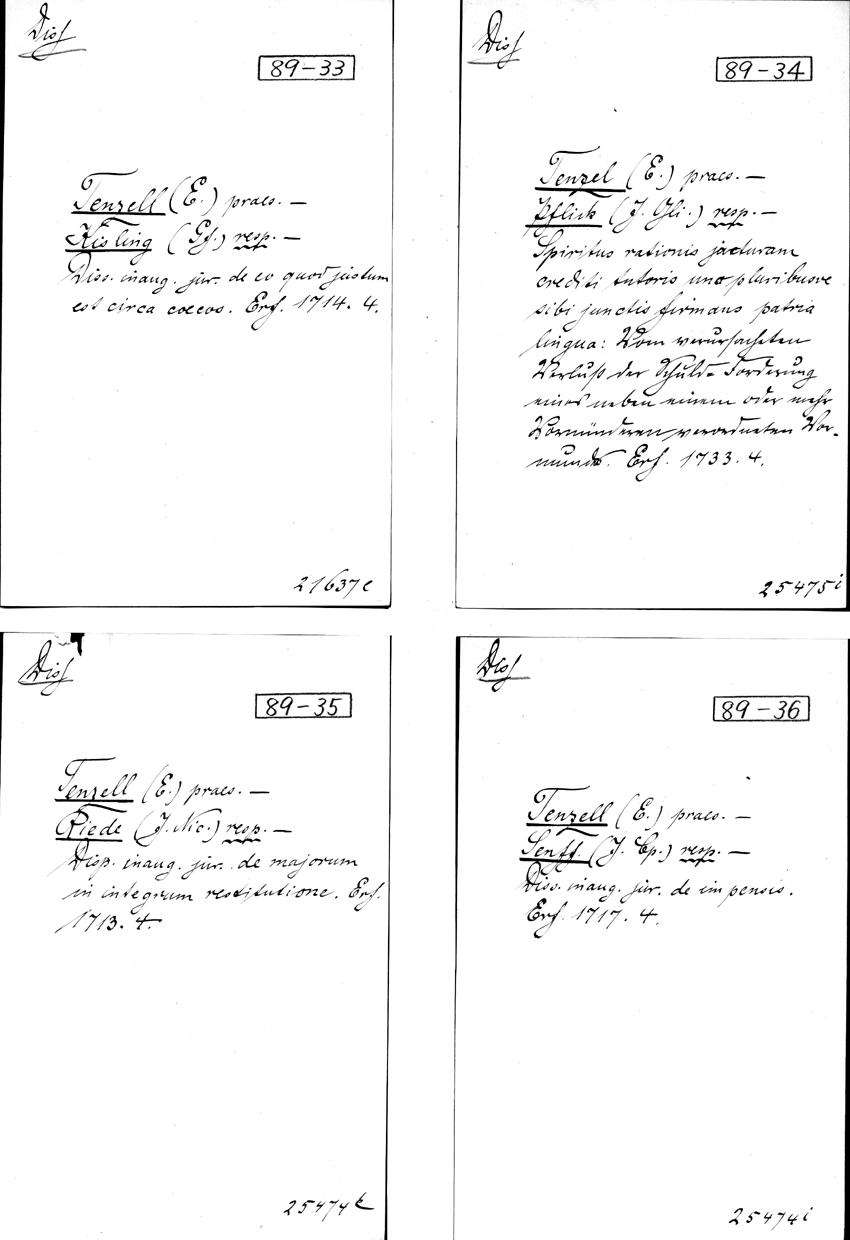 Diss
89-33
Tenzell (E.) praes. —
Kisling (Gf.) resp. —
Diss. inaug. jur. de eo quod justum
est circa coecos. Erf. 1714. 4.
21637e
Diss
89-34
Tenzel (E.) praes. —
Pflick (J. Gli.) resp. —
Spiritus rationis jacturam
crediti tutoris uno pluribusve
sibi junctis firmans patria
lingua: Vom verursacheten
Verlust der Schuld-Forderung
eines neben einem oder mehr
Vormünderen verordneten Vor-
munds. Erf. 1733. 4.
25475i
Diss
89-35
Tenzell (E.) praes. —
Riede (J. Nic.) resp. —
Disp. inaug. jur. de majorum
in integrum restitutione. Erf.
1713. 4.
25474k
Diss
89-36
Tenzell (E.) praes. —
Senff. (J. Cp.) resp. —
Diss. inaug. jur. de impensis.
Erf. 1717. 4.
25474i